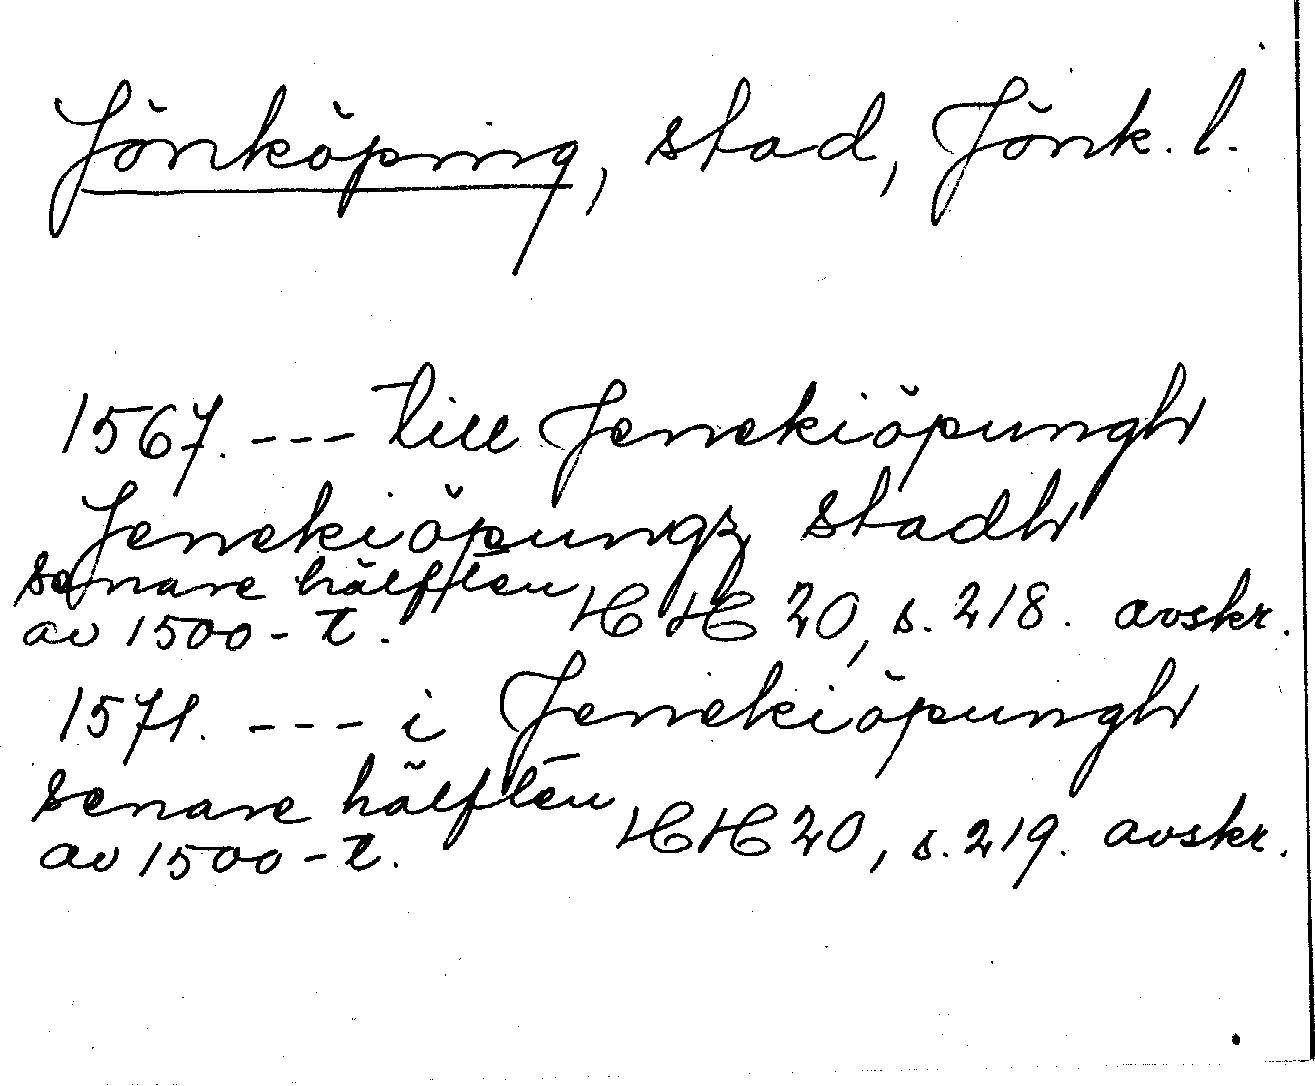 Jönköping, stad, Jönk. l.
1567. --- till Jenekiöpungh
Jenekiöpungz stadh
senare hälften
av 1500-t. HH 20, s. 218. avskr.
1571. --- i Jenekiöpungh
senare hälften
av 1500-t. HH 20, s. 219. avskr.